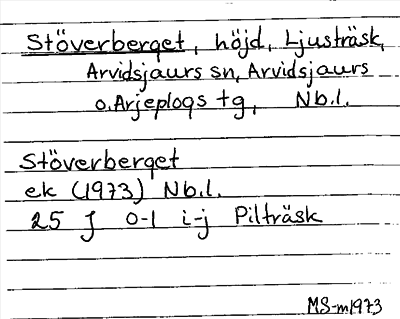 Stöverberget, höjd, Ljusträsk,
Arvidsjaurs sn, Arvidsjaurs
o. Arjeplogs tg, Nb.l.
Stöverberget
ek (1973) Nb.l.
25 J 0-1 i-j Pilträsk
MS-m1973